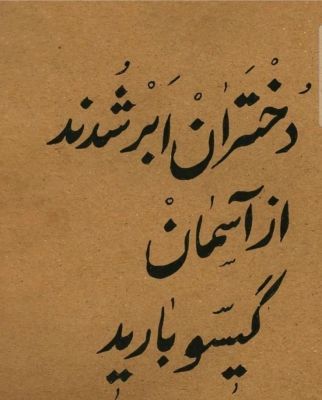 دُخْتَرانْ اَبْر شُدَند
از آسِمانْ
گیسو بارید